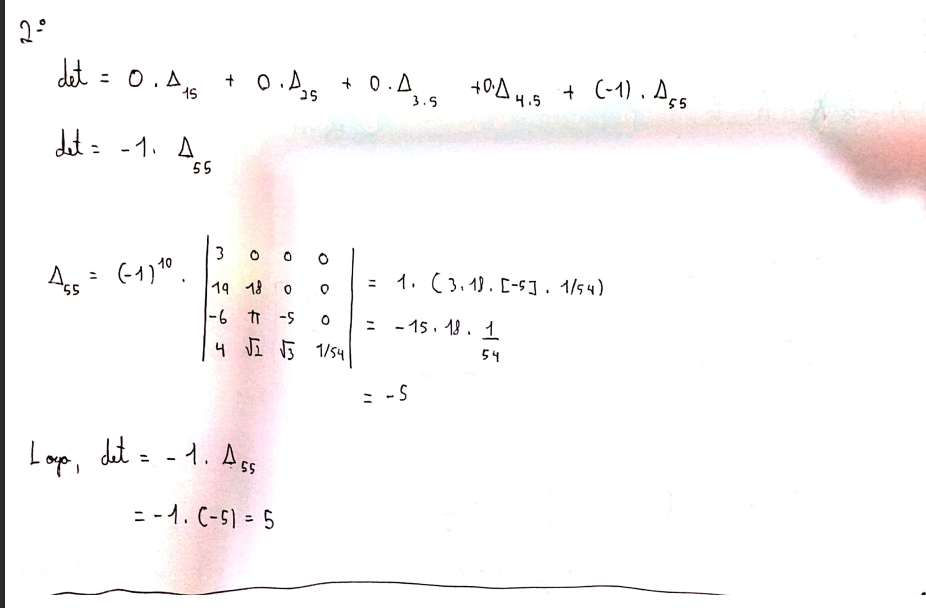 2º
det = 0 . Δ15 + 0 . Δ25 + 0 . Δ3.5 +0.Δ4.5 + (-1) . Δ55
det = -1. Δ55
Δ55 = (-1)^10 .
3 0 0 0
19 18 0 0
-6 π -5 0
4 √2 √3 1/54
= 1. (3.18.[-5]. 1/54)
= -15. 18. 1/54
= -5
Logo, det = -1. Δ55
= -1. (-5) = 5